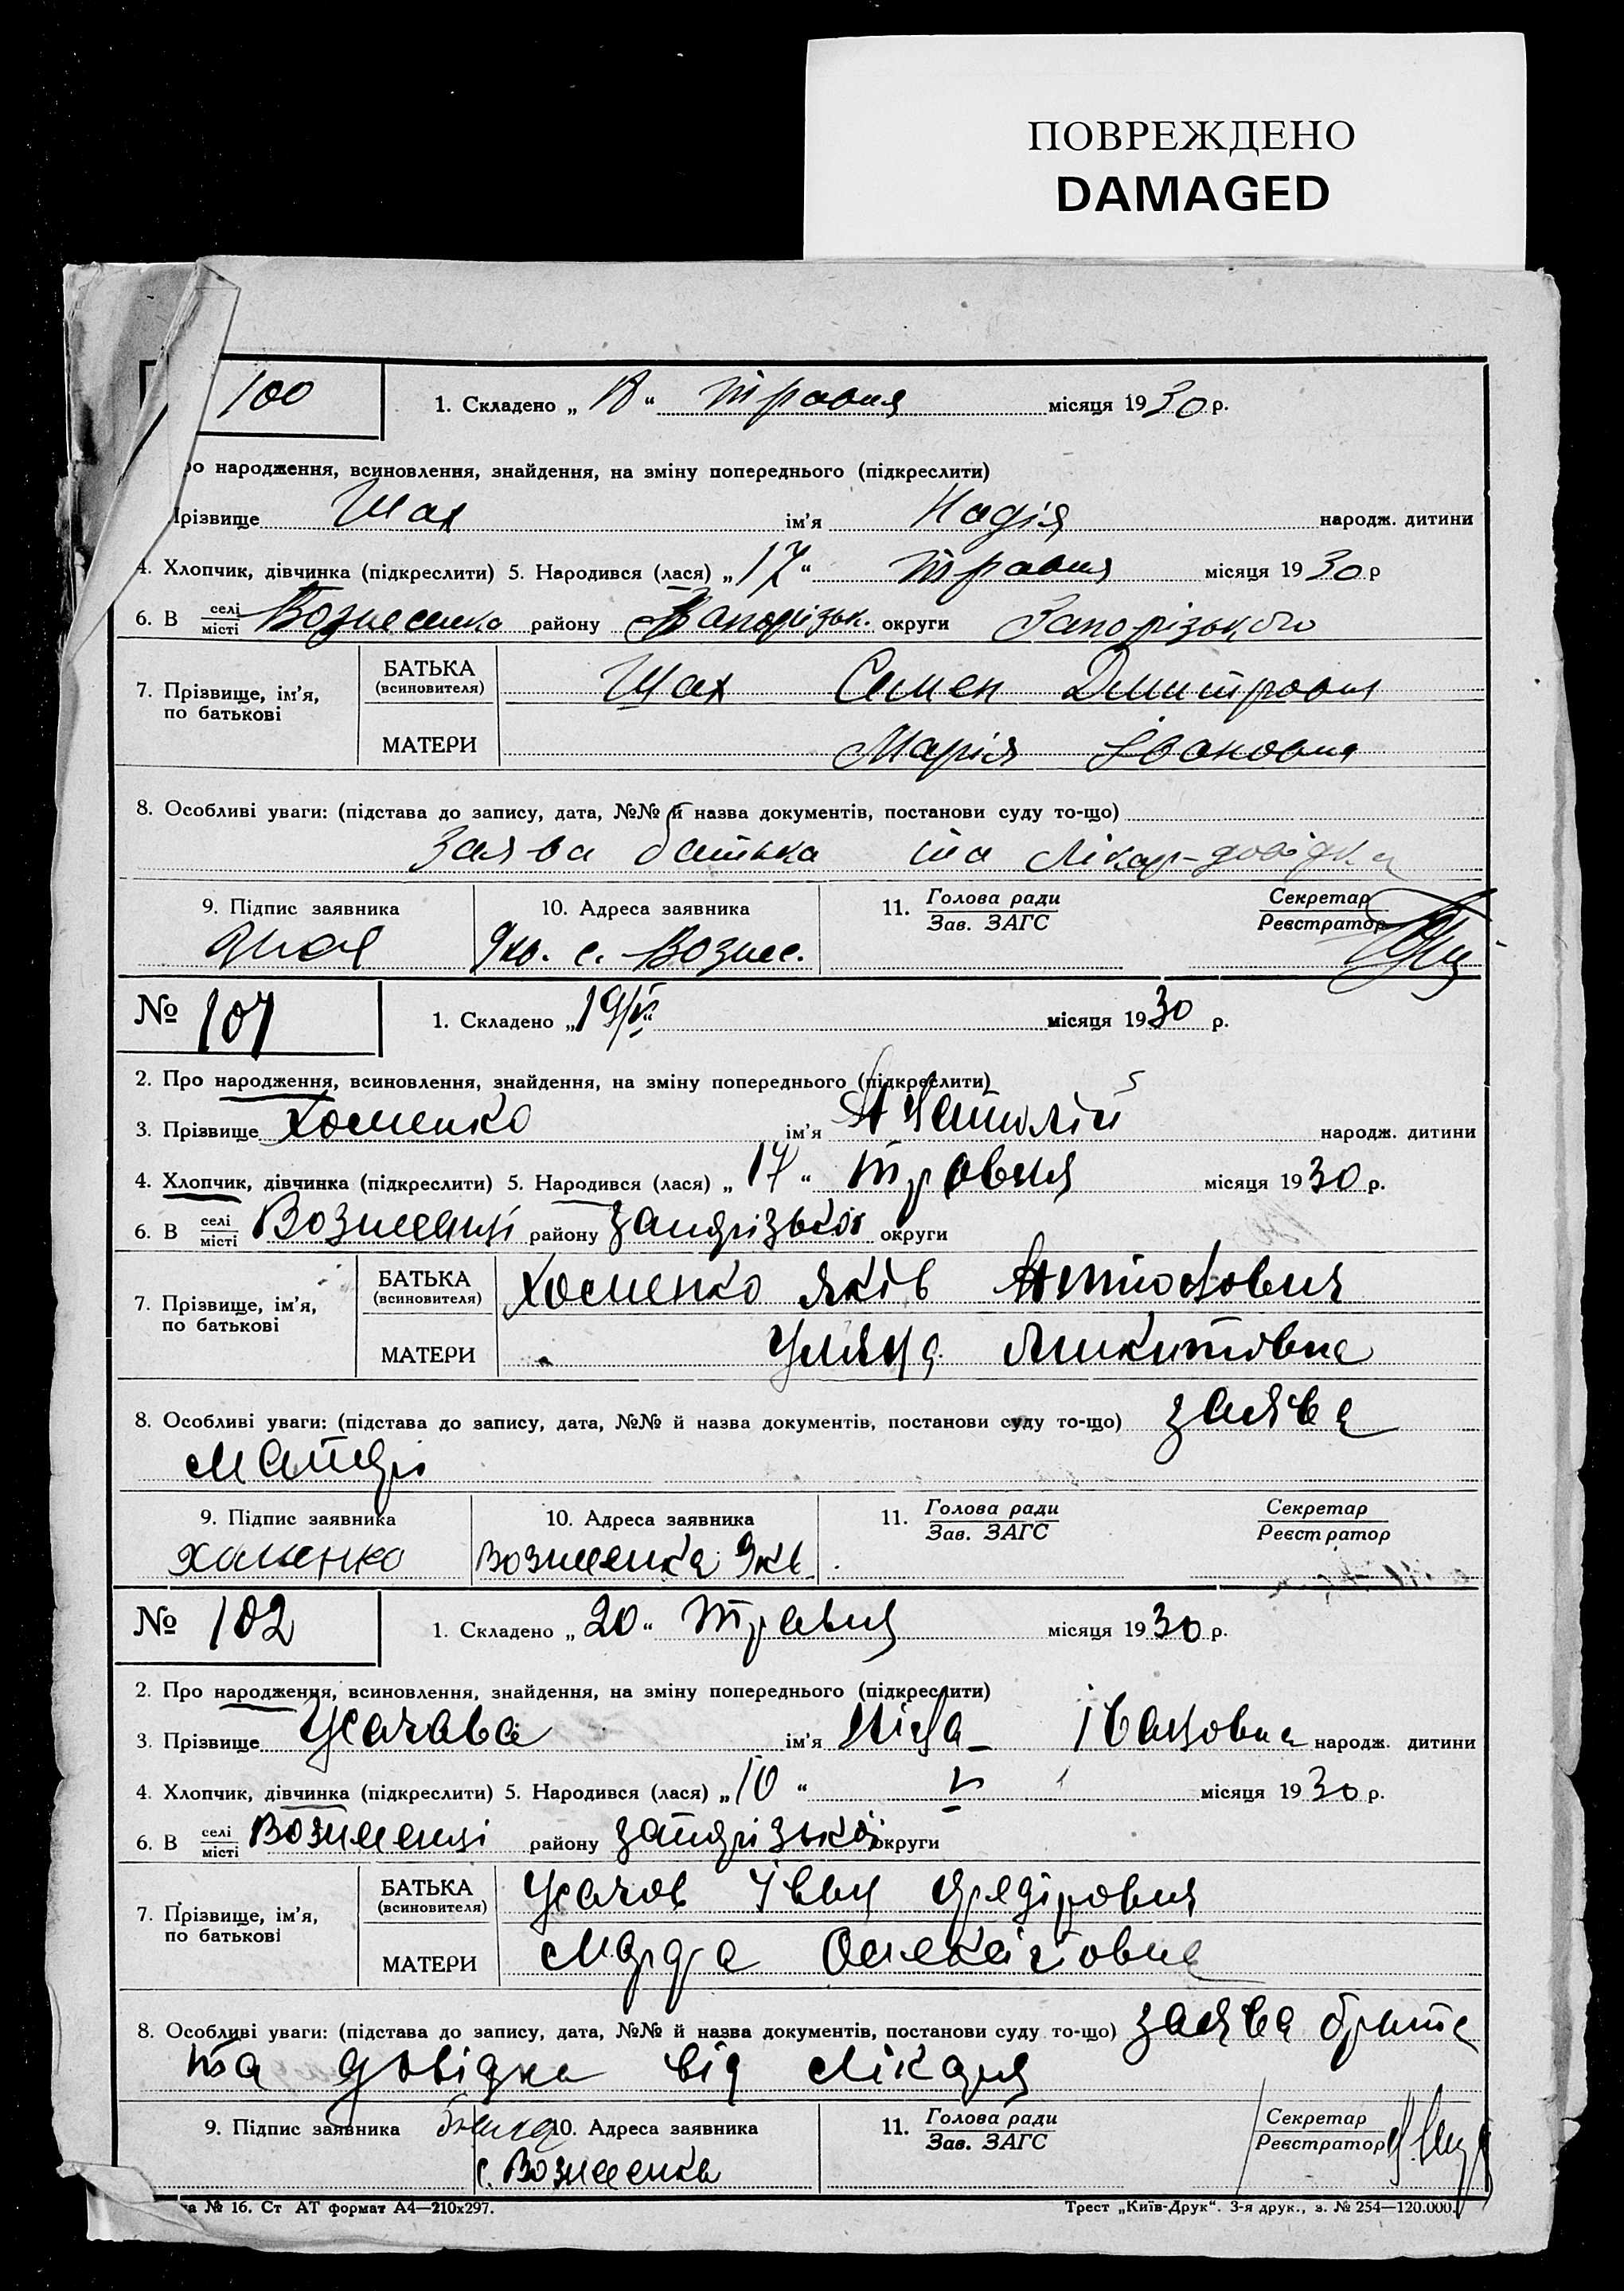 ПОВРЕЖДЕНО
DAMAGED
100
1. Складено „ 18 “ травня місяця 1930 р.
ро народження, всиновлення, знайдення, на зміну попереднього (підкреслити)
Прізвище Шах ім'я Надія народж. дитини
4. Хлопчик, дівчинка (підкреслити) 5. Народився (лася) „ 17 “ травня місяця 1930 р
6. В селі місті Вознесенка району Запоріськ. округи Запорізького
7. Прізвище, ім'я, по батькові
БАТЬКА (всиновителя) Шах Семен Дмитрович
МАТЕРИ Марія Івановна
8. Особливі уваги: (підстава до запису, дата, №№ й назва документів, постанови суду то-що)
Заява батька та лікар-довідка
9. Підпис заявника 10. Адреса заявника 11. Голова ради Зав. ЗАГС Секретар Реєстратор
9 кв. с. Вознес.
№ 101
1. Складено „ 19/V “ місяця 1930 р.
2. Про народження, всиновлення, знайдення, на зміну попереднього (підкреслити)
3. Прізвище Хоменко ім'я Анатолій народж. дитини
4. Хлопчик, дівчинка (підкреслити) 5. Народився (лася) „ 17 “ травня місяця 1930 р.
6. В селі місті Вознесенці району Запорізької округи
7. Прізвище, ім'я, по батькові
БАТЬКА (всиновителя) Хоменко Яків
МАТЕРИ „ Уляна Микитовна
8. Особливі уваги: (підстава до запису, дата, №№ й назва документів, постанови суду то-що) заява
матері
9. Підпис заявника 10. Адреса заявника 11. Голова ради Зав. ЗАГС Секретар Реєстратор
Хоменко Вознесенка 9 кв.
№ 102
1. Складено „ 20 “ травня місяця 1930 р.
2. Про народження, всиновлення, знайдення, на зміну попереднього (підкреслити)
3. Прізвище Усачова ім'я Ніна Івановна народж. дитини
4. Хлопчик, дівчинка (підкреслити) 5. Народився (лася) „ 10 “ V місяця 1930 р.
6. В селі місті Вознесенці району Запорізької округи
7. Прізвище, ім'я, по батькові
БАТЬКА (всиновителя) Усачов Іван
МАТЕРИ
8. Особливі уваги: (підстава до запису, дата, №№ й назва документів, постанови суду то-що) заява брата
та довідка від лікаря
9. Підпис заявника 10. Адреса заявника 11. Голова ради Зав. ЗАГС Секретар Реєстратор
с. Вознесенка
а № 16. Ст АТ формат А4—210х297. Трест „Київ-Друк“. 3-я друк., з. № 254—120.000.